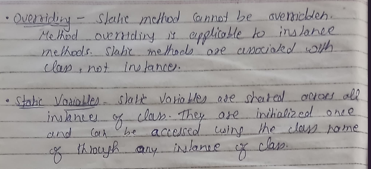 • Overriding - static method cannot be overridden.
Method overriding is applicable to instance
methods. Static methods are associated with
class, not instances.
• Static Variables - static variables are shared across all
instances of class. They are initialized once
and can be accessed using the class name
of through any instance of class.